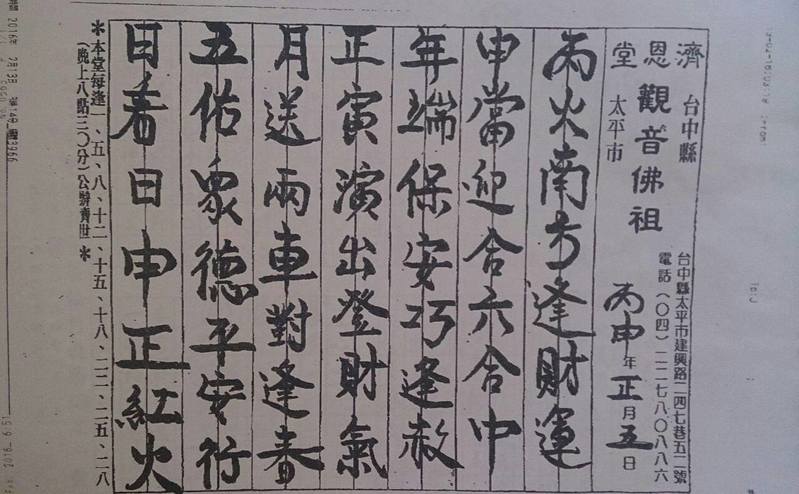 濟恩堂
台中縣太平市
觀音佛祖
台中縣太平市建興路二四七巷五二號
電話(〇四)二二七八〇八八六
丙申年正月五日
丙火南方逢財運
申當迎合六合中
年端保安巧逢赦
正寅演出登財氣
月送兩車對逢春
五佑眾德平安行
日着日申正紅火
*本堂每逢二、五、八、十二、十五、十八、二二、二五、二八
(晚上八點三〇分)公辦濟世*
2016年 2月13日